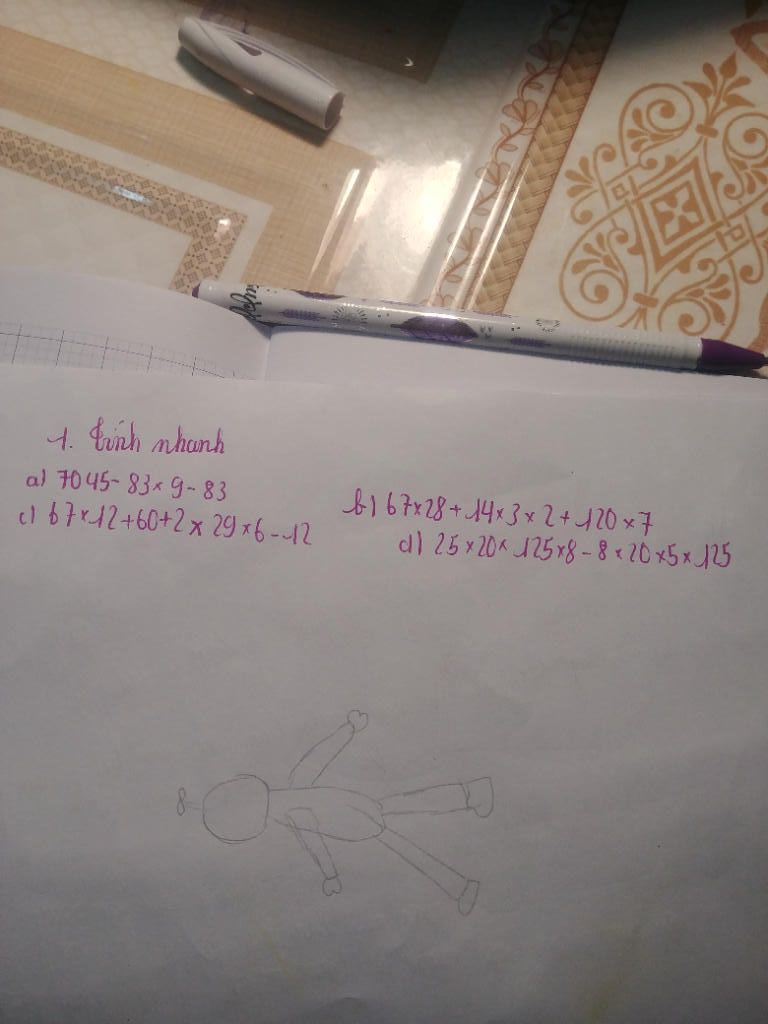 1. Tính nhanh
a) 7045 - 83 x 9 - 83
b) 67 x 28 + 14 x 3 x 2 + 120 x 7
c) 67 x 12 + 60 + 2 x 29 x 6 - 12
d) 25 x 20 x 125 x 8 - 8 x 20 x 5 x 125